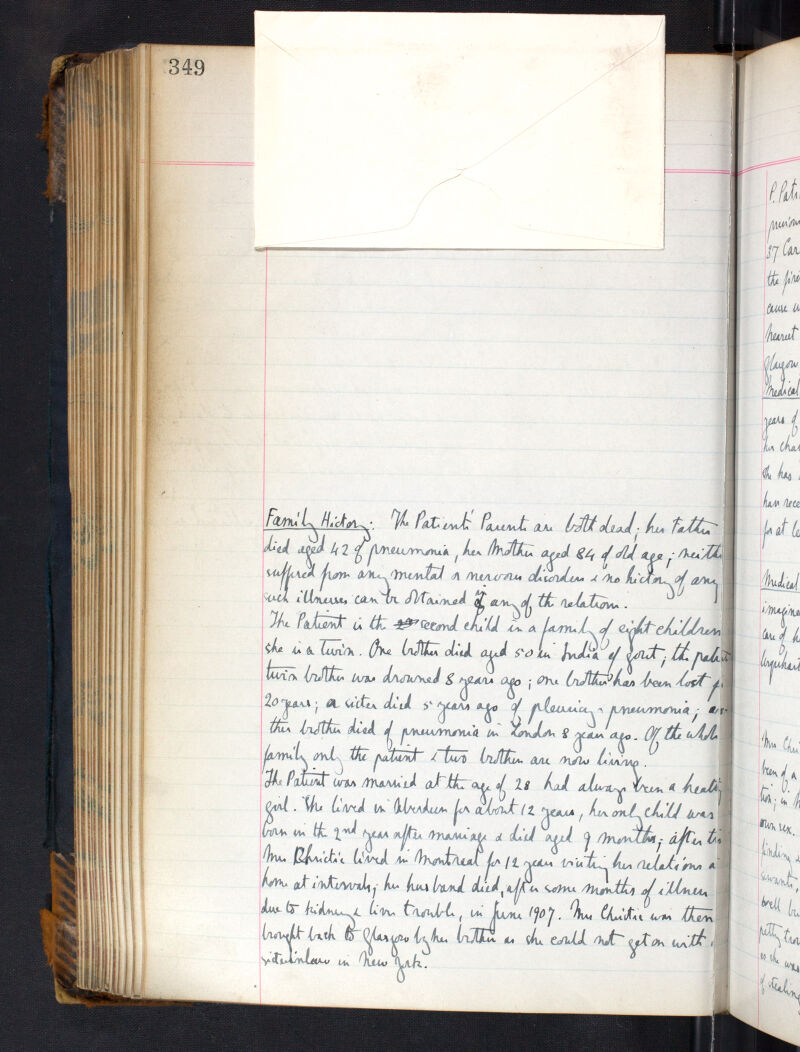 349
Family History: The Patients' Parents are both dead; her Father
died aged 42 of pneumonia, her Mother aged 84 of old age; neithe
suffered from any mental or nervous disorders & no history of any
such illnesses can be obtained of any of the relations.
The Patient is the second child in a family of eight children
she is a twin. One brother died aged 50 in India of gout; the patie
twin brother was drowned 8 years ago; one brother has been lost
20 years; a sister died 5 years ago of pleurisy & pneumonia;
ther brother died of pneumonia in London 8 years ago. Of the whole
family only the patient & two brothers are now living.
The Patient was married at the age of 28 had always been a healthy
girl. She lived in Aberdeen for about 12 years, her only child was
born in the 2nd year after marriage & died aged 9 months; after
Mrs Christie lived in Montreal for 12 years visiting her relations a
home at intervals; her husband died, after some months of illness
due to kidney & liver trouble, in June 1907. Mrs Christie was then
brought back to Glasgow by her brother as she could not get on with
sister-in-law in New York.
P. Pati
previous
37 Car
the fir
cause
nearest
Glasgow
Medical
years of
her cha
she has
has rece
for at le
Medical
imagine
care of h
Urquhart
Mrs Chri
been of a
own sex.
kindly
servants,
petty
as she was
of stealing